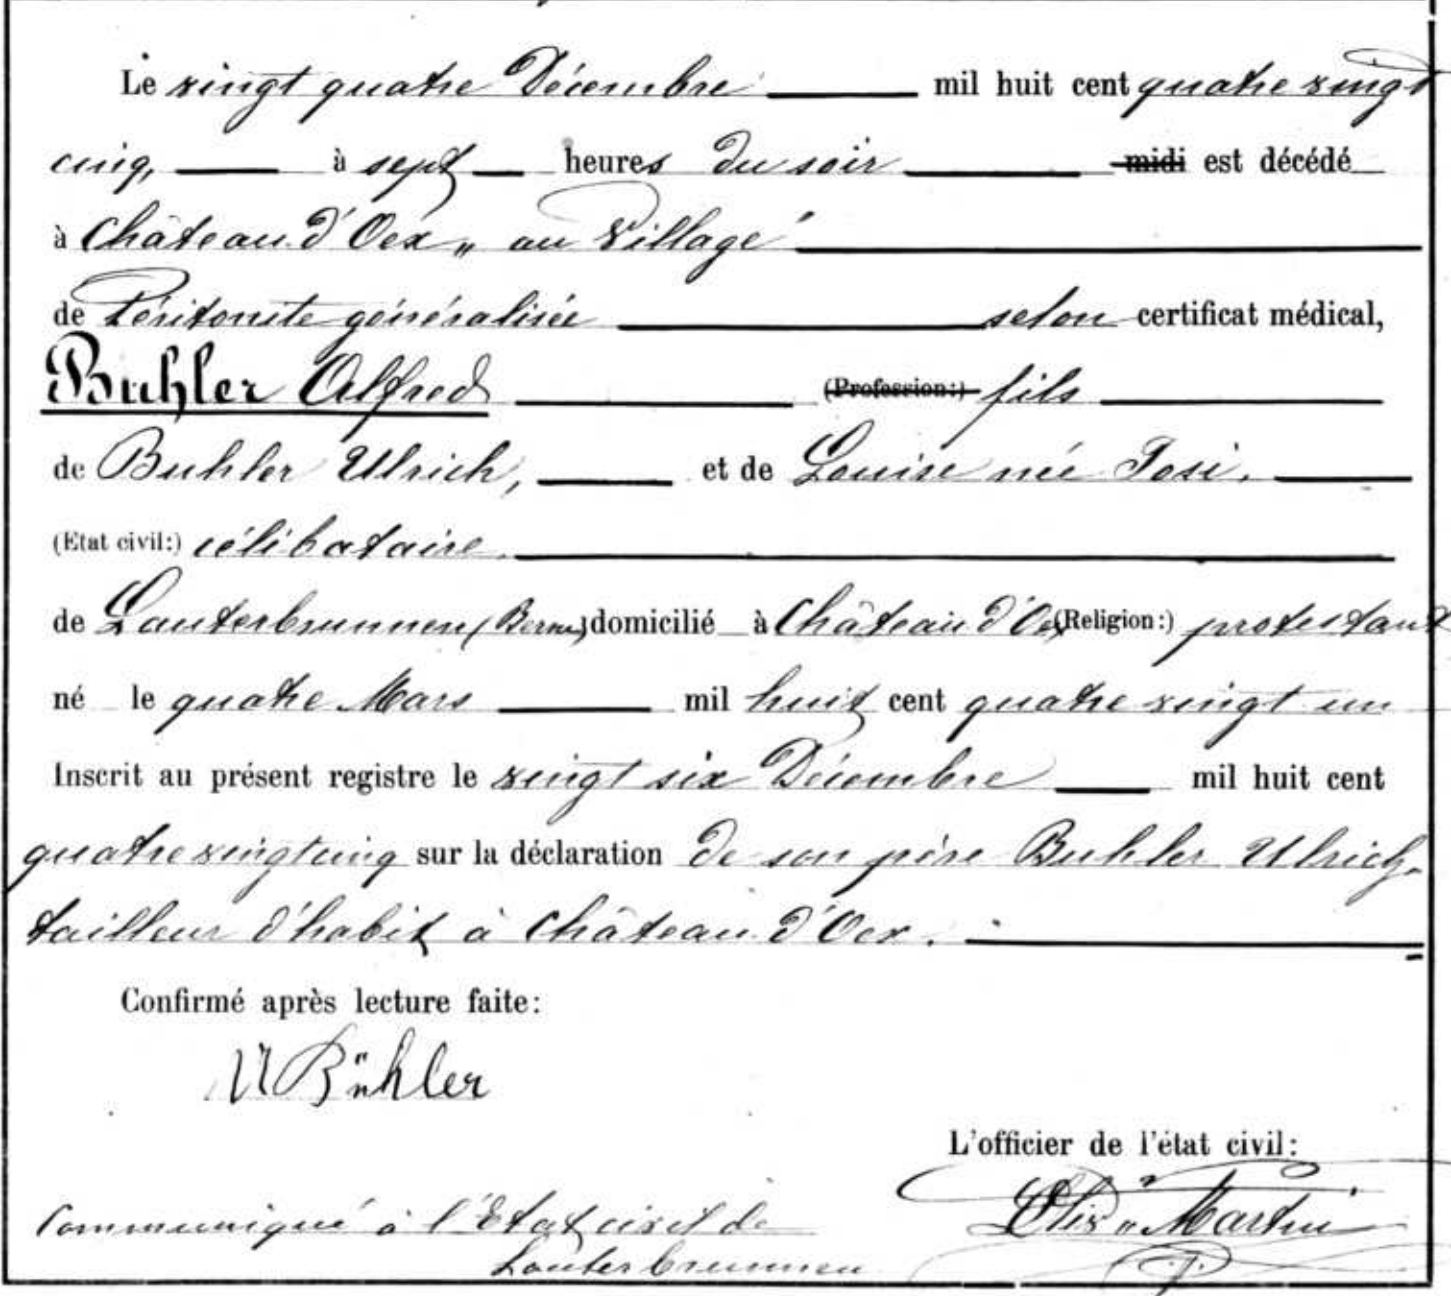 Le vingt quatre Décembre mil huit cent quatre vingt
cinq, à sept heures du soir midi est décédé
à Château d'Oex „ au Village "
de Péritonite généralisée selon certificat médical,
Buhler Alfred (Profession:) fils
de Buhler Ulrich, et de Louise née Josi.
(Etat civil:) célibataire.
de Lauterbrunnen (Berne) domicilié à Château d'Oex (Religion:) protestant
né le quatre Mars mil huit cent quatre vingt un
Inscrit au présent registre le vingt six Décembre mil huit cent
quatre vingt cinq sur la déclaration de son père Buhler Ulrich,
tailleur d'habit à Château d'Oex.
Confirmé après lecture faite:
U Bühler
L'officier de l'état civil:
Martin
Communiqué à l'Etat civil de
Lauterbrunnen